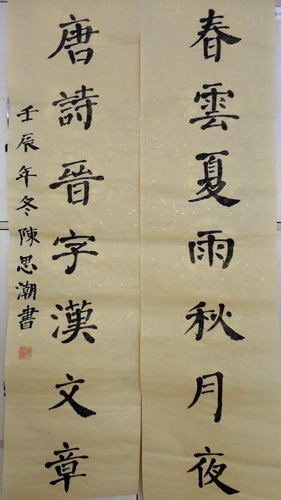 春雲夏雨秋月夜
唐詩晉字漢文章
壬辰年冬陳思潮書